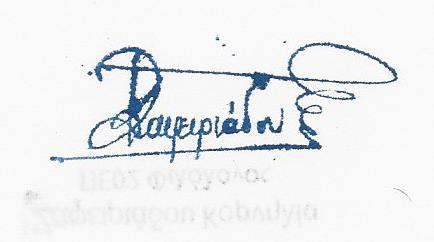 Ζαφειριάδου
ΠΕ02 Φιλόλογος
Ζαφειριάδου Κορνηλία